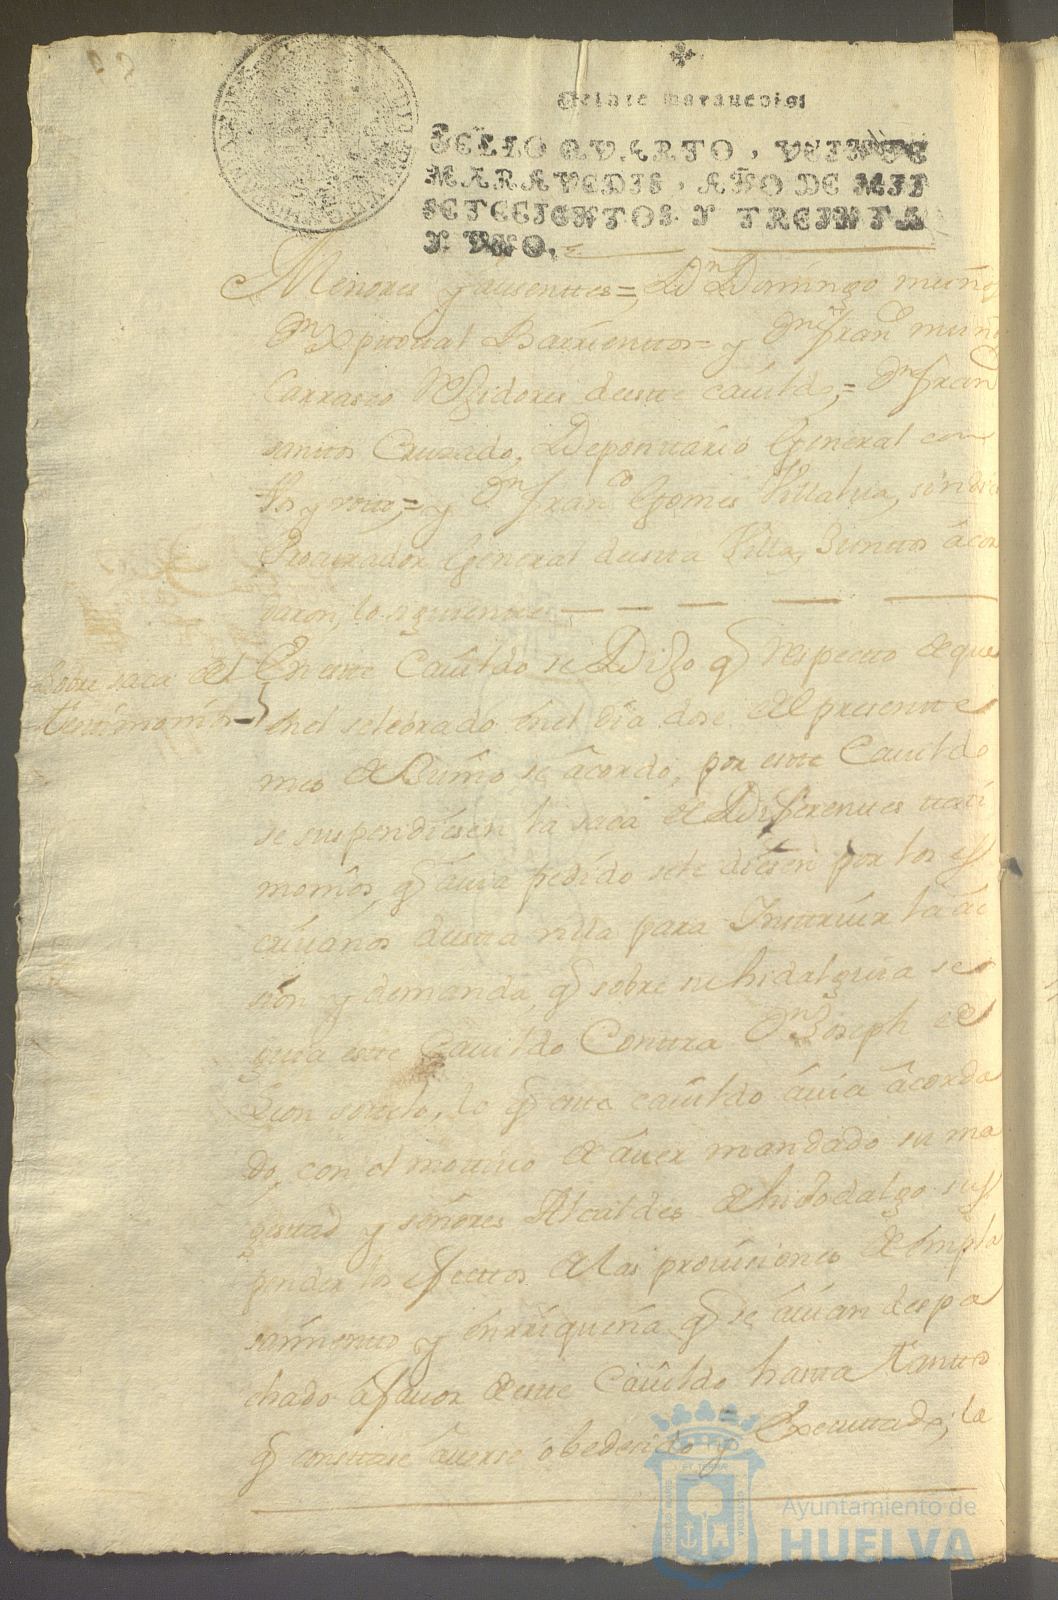 Veinte marauedis.
SELLO QVARTO, VEINTE
MARAVEDIS, AÑO DE MIL
SETECIENTOS Y TREINTA
Y VNO.
Menores y ausenttes = Dn Domingo muños
Dn Xptoual Barrienttos = y Dn Franco muños
Carrasco Rexidores deestte cauildo, = Dn Franco
santtos Cruzado, Deposittario General con
vos y votto, = y Dn Franco Gomes Villalua, sindico
Procurador General destta Villa, Junttos acor
daron, lo siguientte
Sobre saca del
testimonio
En estte Cauildo se Dixo q respecto de que
en el selebrado en el dia dose del presentte
mes de Junio se acordo, por estte Cauildo
se suspendiesen la saca de Diferenttes testi
monios, q auia pedido se le diesen por los ess
criuanos destta villa para Instruir la ac
sion y demanda, q sobre su hidalguia se
guia estte Cauildo Contra Dn Joseph de
sotelo, lo q estte cauildo auia acorda
do, con el mottiuo de auer mandado su ma
gesttad y señores Alcaldes de hijodalgo sus
pender los efecttos de las prouisiones de empla
samientto y enrriqueña q se auian despa
chado a fauor de estte Cauildo hasta tantto
q consttase auerse obedesido y Executtado, la
Ayuntamiento de
HUELVA